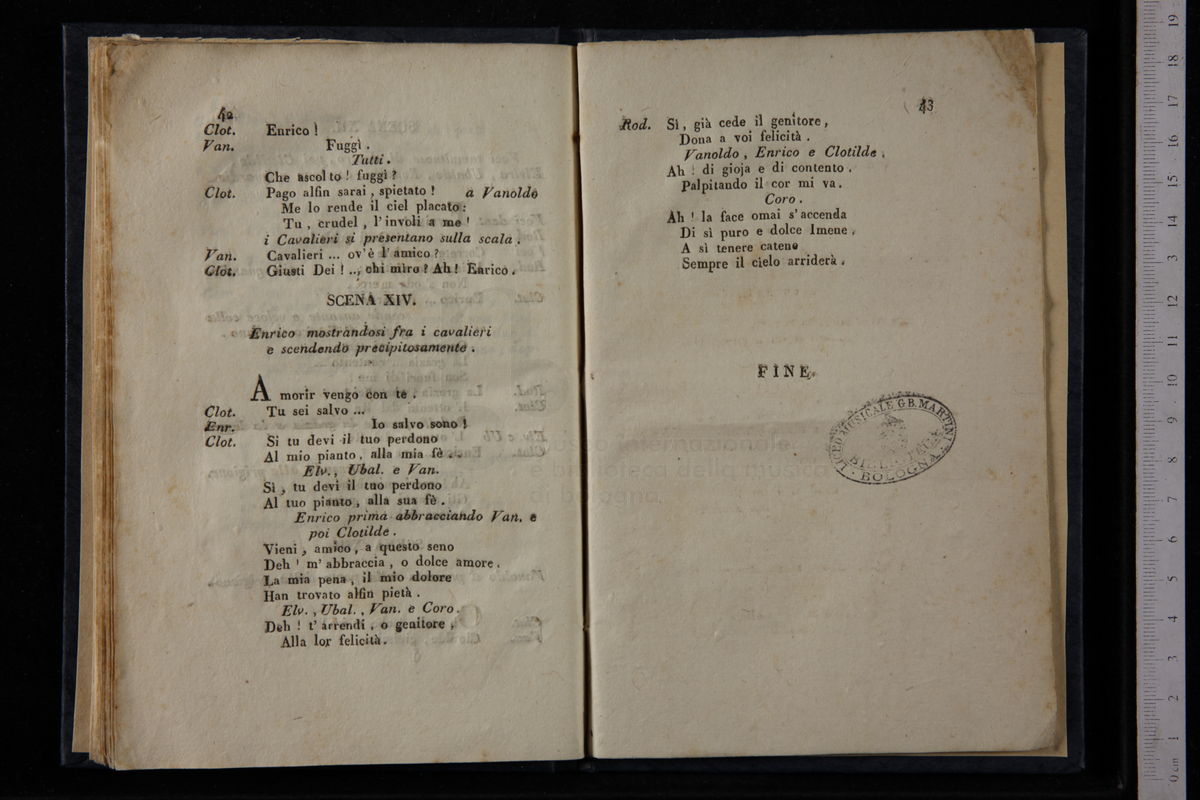 42
Clot. Enrico !
Van. Fuggì .
Tutti .
Che ascolto ! fuggì ?
Clot. Pago alfin sarai , spietato ! a Vanoldo
Me lo rende il ciel placato :
Tu , crudel , l'involi a me !
i Cavalieri si presentano sulla scala .
Van. Cavalieri ... ov'è l'amico ?
Clot. Giusti Dei ! ... chi miro ? Ah ! Enrico .
SCENA XIV.
Enrico mostrandosi fra i cavalieri
e scendendo precipitosamente .
A morir vengo con te .
Clot. Tu sei salvo ...
Enr. Io salvo sono !
Clot. Si tu devi il tuo perdono
Al mio pianto , alla mia fè ...
Elv. , Ubal. e Van.
Sì , tu devi il tuo perdono
Al tuo pianto , alla sua fè .
Enrico prima abbracciando Van. e
poi Clotilde .
Vieni , amico , a questo seno
Deh ! m'abbraccia , o dolce amore .
La mia pena , il mio dolore
Han trovato alfin pietà .
Elv. , Ubal. , Van. e Coro .
Deh ! t'arrendi , o genitore ,
Alla lor felicità .
43
Rod. Sì , già cede il genitore ,
Dona a voi felicità .
Vanoldo , Enrico e Clotilde .
Ah ! di gioja e di contento .
Palpitando il cor mi va .
Coro .
Ah ! la face omai s'accenda
Di sì puro e dolce Imene ,
A sì tenere catene
Sempre il cielo arriderà .
FINE.
LICEO MUSICALE G.B. MARTINI
BOLOGNA
museo internazionale
e biblioteca della musica
di bologna
0 cm 1 2 3 4 5 6 7 8 9 10 11 12 13 14 15 16 17 18 19